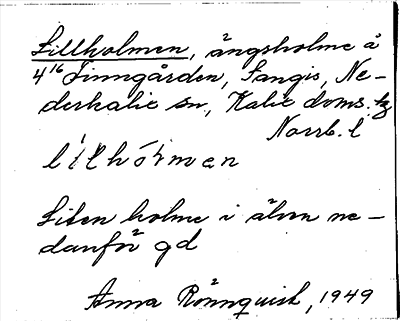 Lillholmen, ängsholme å
4¹⁶ Finngården, Sangis, Ne-
derkalix sn, Kalix doms. tg
Norrb. l
lìlhórmen
Liten holme i älven ne-
danför gd
Anna Rönnquist, 1949